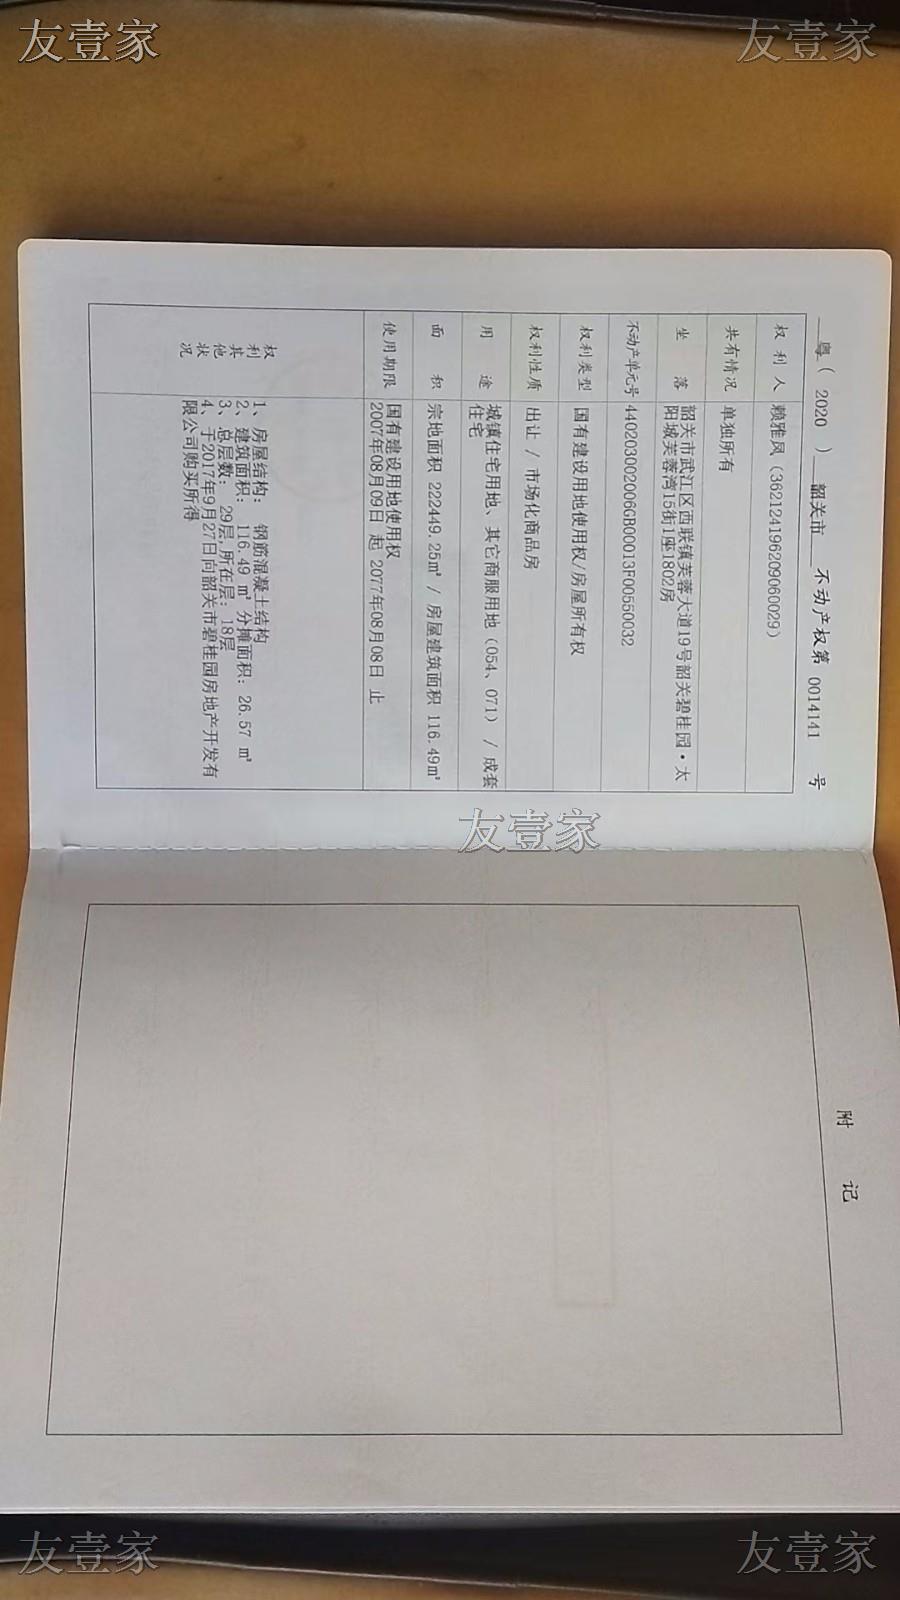 友壹家
友壹家
粤（ 2020 ） 韶关市 不动产权第 0014141 号
权利人 赖雅凤（362124196209060029）
共有情况 单独所有
坐落 韶关市武江区西联镇芙蓉大道19号韶关碧桂园·太
阳城芙蓉湾15街1座1802房
不动产单元号 440203002006GB00013F00550032
权利类型 国有建设用地使用权/房屋所有权
权利性质 出让 / 市场化商品房
用途 城镇住宅用地、其它商服用地（054、071） / 成套
住宅
面积 宗地面积 222449.25㎡ / 房屋建筑面积 116.49㎡
使用期限 国有建设用地使用权
2007年08月09日 起 2077年08月08日 止
权利其他状况
1、房屋结构： 钢筋混凝土结构
2、建筑面积： 116.49 ㎡ 分摊面积：26.57 ㎡
3、总层数： 29层,所在层：18层
4、于2017年9月27日向韶关市碧桂园房地产开发有
限公司购买所得
友壹家
附记
友壹家
友壹家